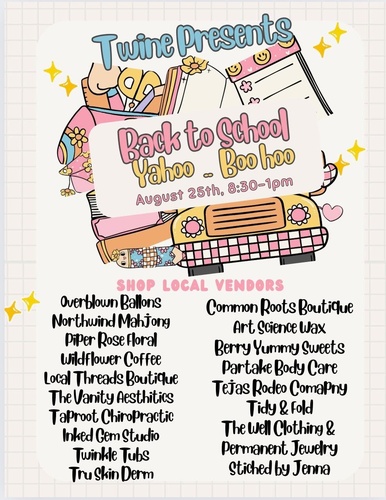 Twine Presents
Back to School
Yahoo - Boo hoo
August 25th, 8:30-1pm
SHOP LOCAL VENDORS
Overblown Ballons
Northwind Mahjong
Piper Rose Floral
Wildflower Coffee
Local Threads Boutique
The Vanity Aesthitics
TapRoot Chiropractic
Inked Gem Studio
Twinkle Tubs
Tru Skin Derm
Common Roots Boutique
Art Science Wax
Berry Yummy Sweets
Partake Body Care
Tejas Rodeo Comapny
Tidy & Fold
The Well Clothing &
Permanent Jewelry
Stiched by Jenna